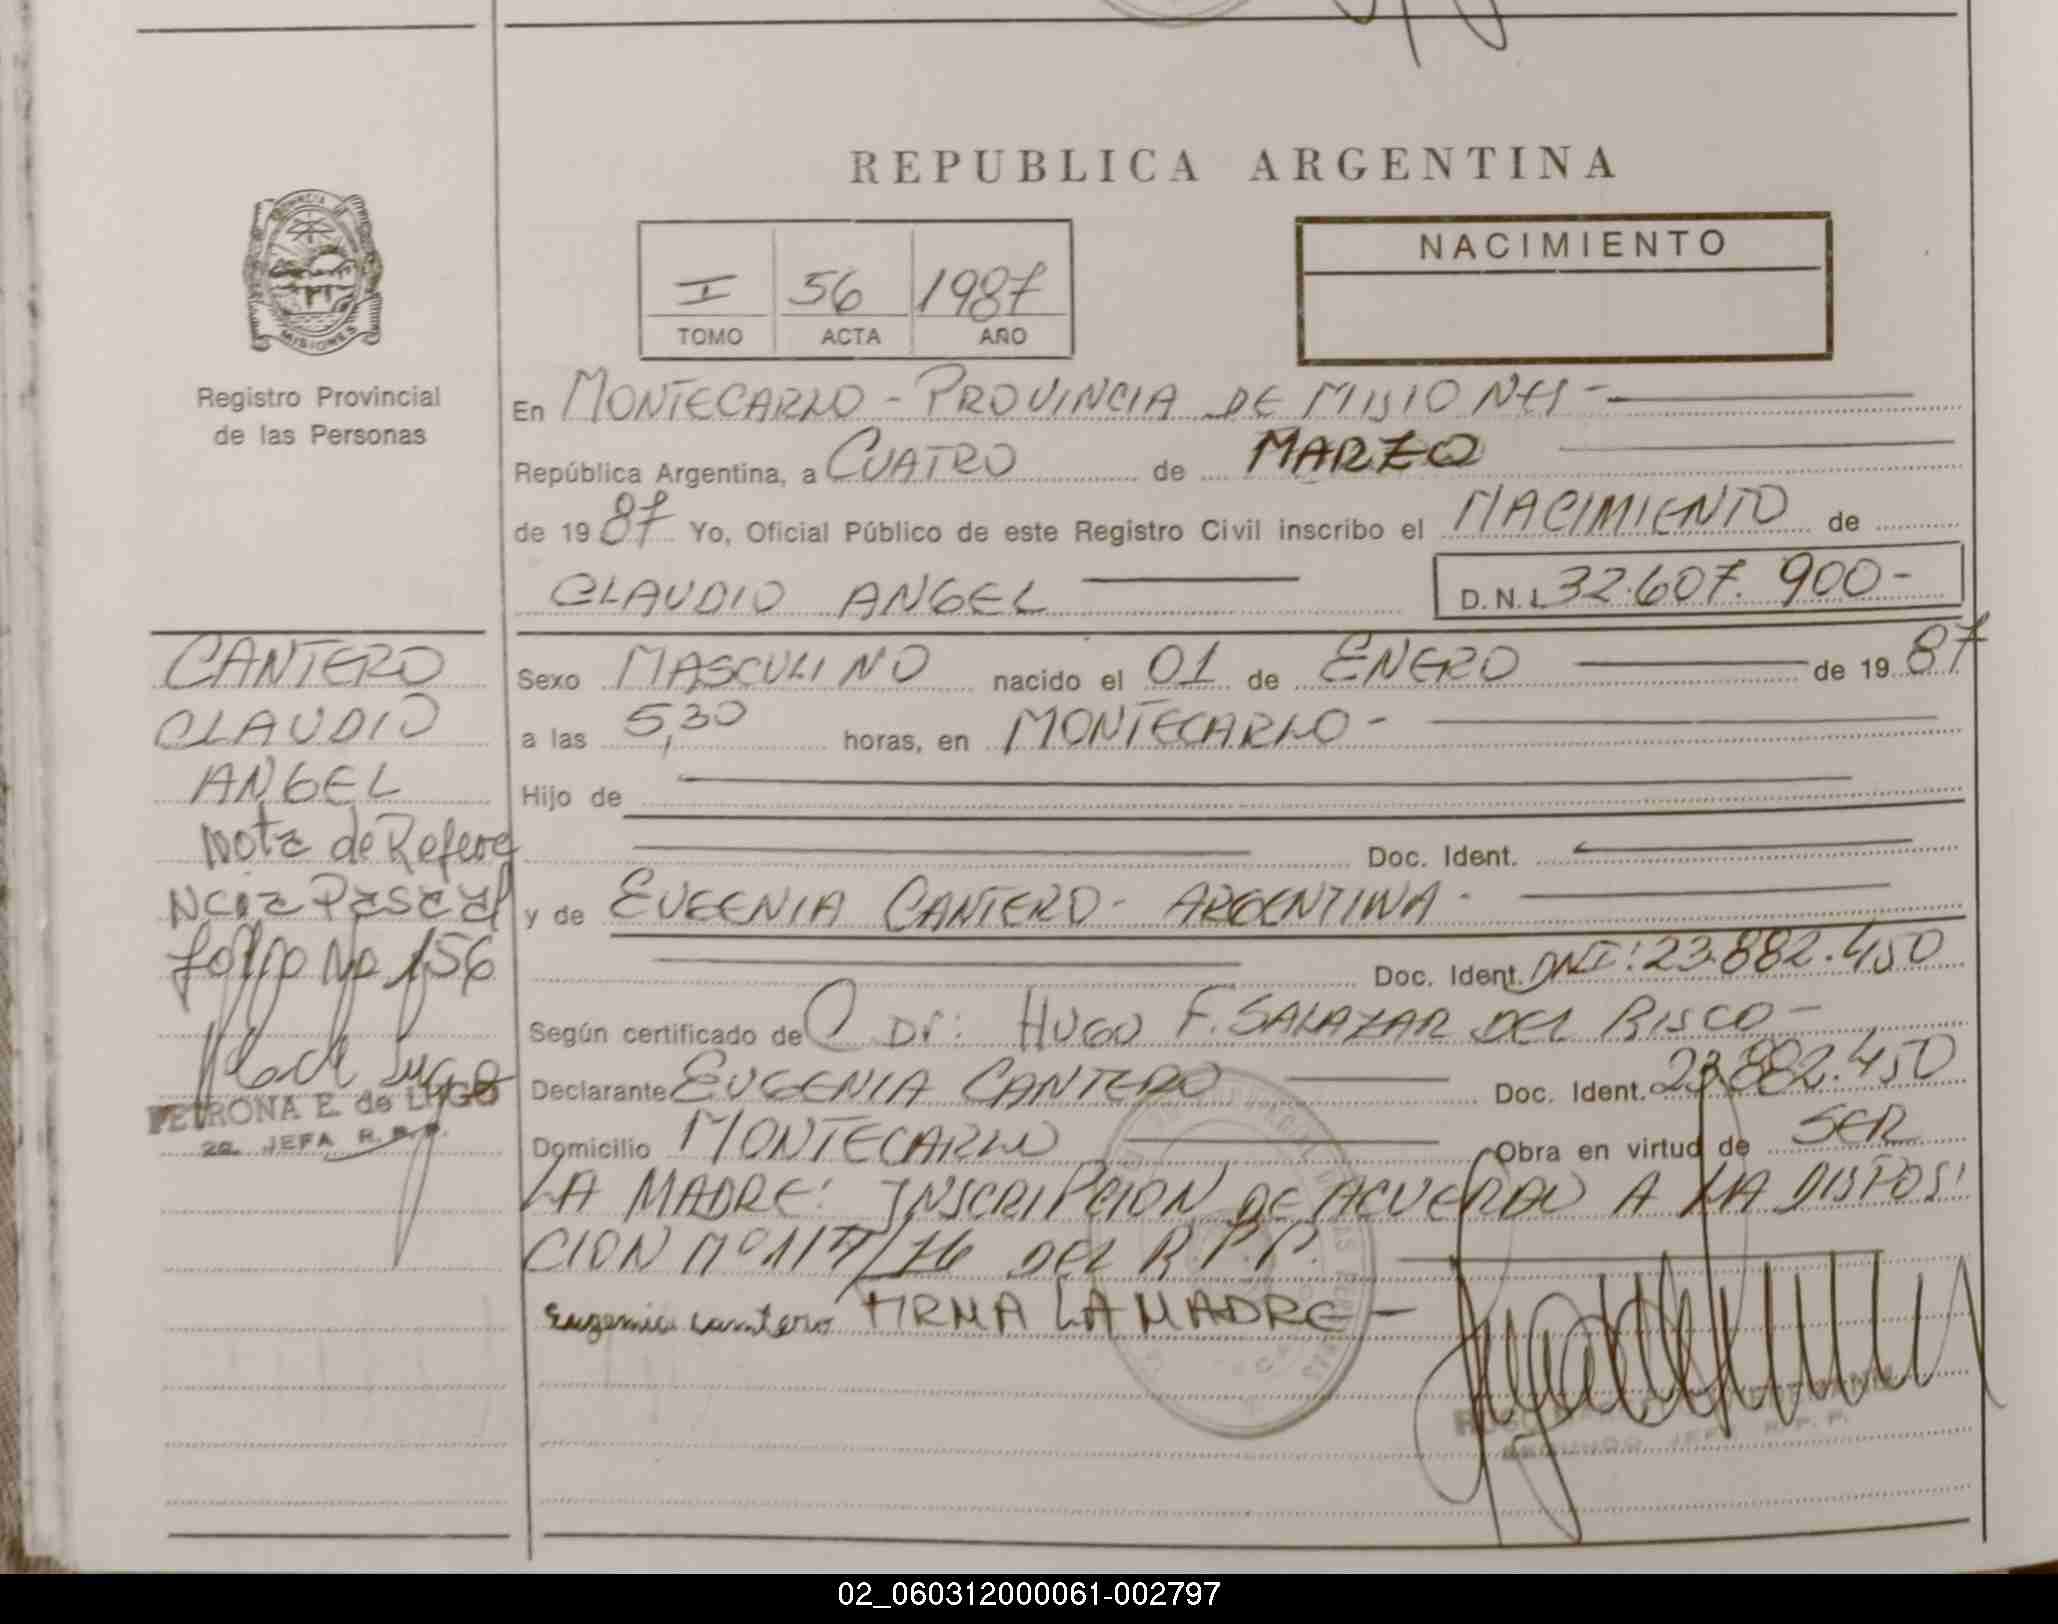 REPUBLICA ARGENTINA
PROVINCIA DE
MISIONES
Registro Provincial
de las Personas
I 56 1987
TOMO ACTA AÑO
NACIMIENTO
En MONTECARLO - PROVINCIA DE MISIONES -
República Argentina, a CUATRO de MARZO
de 1987 Yo, Oficial Público de este Registro Civil inscribo el NACIMIENTO de
CLAUDIO ANGEL D.N.I. 32.607.900-
CANTERO
CLAUDIO
ANGEL
Nota de Refere
Ncia Pasa al
folio No 156
PETRONA E. de LUGO
2a. JEFA R.P.P.
Sexo MASCULINO nacido el 01 de ENERO de 1987
a las 5,30 horas, en MONTECARLO -
Hijo de
Doc. Ident.
y de EUGENIA CANTERO - ARGENTINA -
Doc. Ident. DNI: 23.882.450
Según certificado de Dr: HUGO F. SALAZAR DEL RISCO -
Declarante EUGENIA CANTERO Doc. Ident. 23.882.450
Domicilio MONTECARLO Obra en virtud de SER
LA MADRE: INSCRIPCION DE ACUERDO A LA DISPOSI
CION Nº 117/76 DEL R.P.P.
Eugenia cantero FIRMA LA MADRE -
SEGUNDO JEFE R.P.P.
02_060312000061-002797